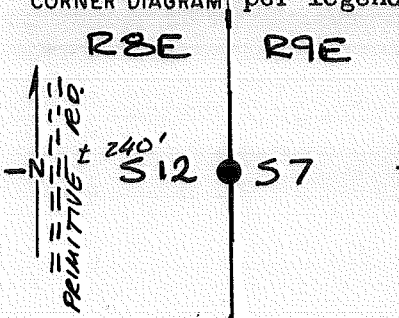 CORNER DIAGRAM per legend
R8E R9E
N
PRIMITIVE RD.
± 240'
S12 S7